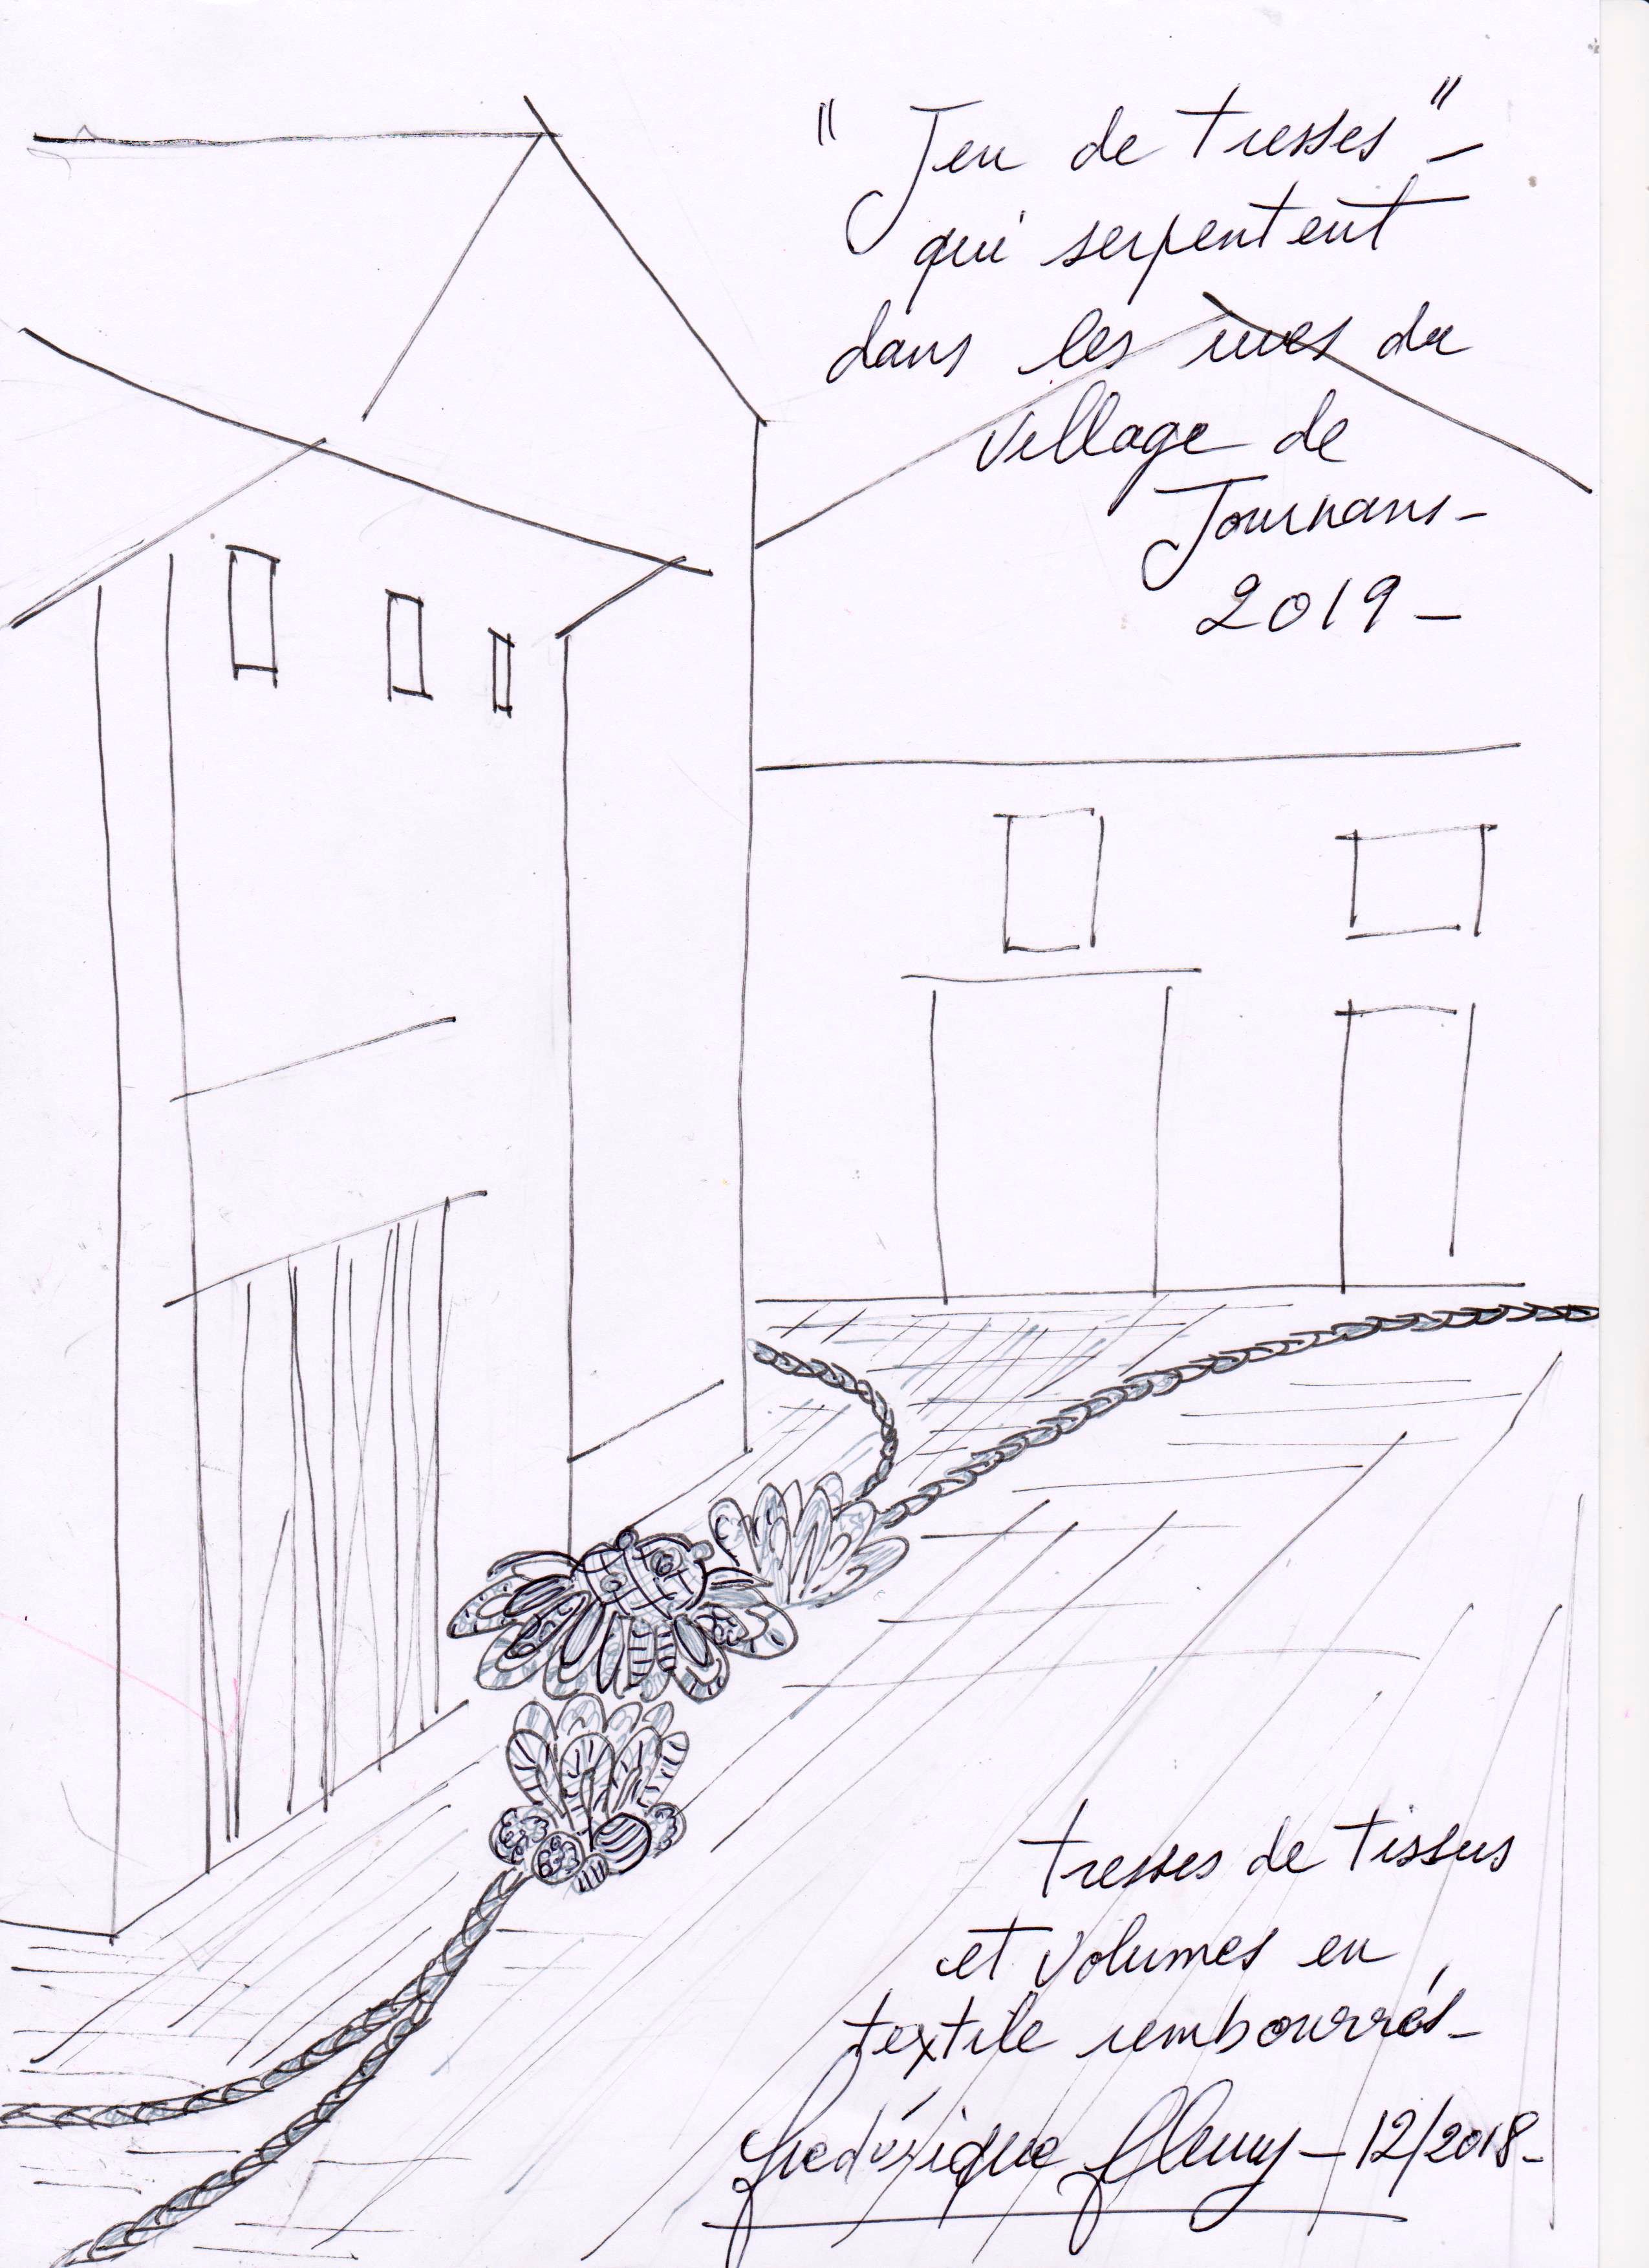 "Jeu de tresses" –
qui serpentent
dans les rues du
village de
Journans –
2019 –
tresses de tissus
et volumes en
textile rembourrés –
Frédérique Fleury – 12/2018 –